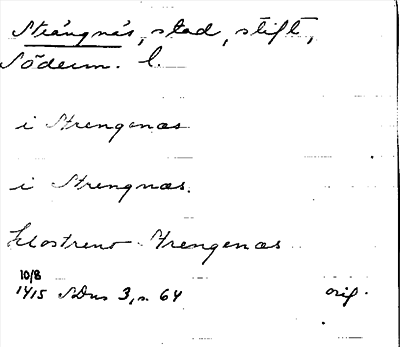 Strängnäs, stad, stift,
Söderm. l.
i Strengenæs
i Strengnæs.
klostreno Strengenæs
10/8
1415 SDns 3, s. 64 orig.